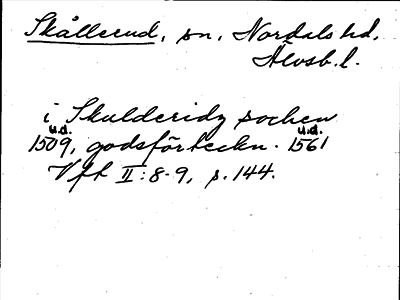 Skållerud, sn, Nordals hd,
Älvsb. l.
i Skulderidz sochen
u.d. u.d.
1509, godsförteckn. 1561
Vft II:8-9, s. 144.